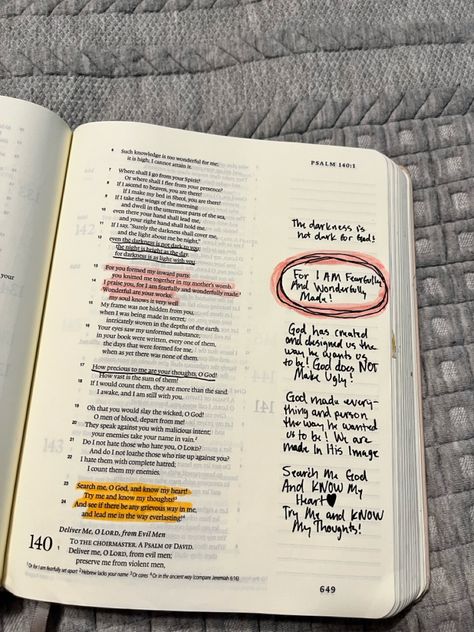 PSALM 140:1
6 Such knowledge is too wonderful for me;
it is high; I cannot attain it.
7 Where shall I go from your Spirit?
Or where shall I flee from your presence?
8 If I ascend to heaven, you are there!
If I make my bed in Sheol, you are there!
9 If I take the wings of the morning
and dwell in the uttermost parts of the sea,
10 even there your hand shall lead me,
and your right hand shall hold me.
11 If I say, "Surely the darkness shall cover me,
and the light about me be night,"
12 even the darkness is not dark to you;
the night is bright as the day,
for darkness is as light with you.
13 For you formed my inward parts;
you knitted me together in my mother's womb.
14 I praise you, for I am fearfully and wonderfully made.
Wonderful are your works;
my soul knows it very well.
15 My frame was not hidden from you,
when I was being made in secret,
intricately woven in the depths of the earth.
16 Your eyes saw my unformed substance;
in your book were written, every one of them,
the days that were formed for me,
when as yet there was none of them.
17 How precious to me are your thoughts, O God!
How vast is the sum of them!
18 If I would count them, they are more than the sand.
I awake, and I am still with you.
19 Oh that you would slay the wicked, O God!
O men of blood, depart from me!
20 They speak against you with malicious intent;
your enemies take your name in vain.
21 Do I not hate those who hate you, O LORD?
And do I not loathe those who rise up against you?
22 I hate them with complete hatred;
I count them my enemies.
23 Search me, O God, and know my heart!
Try me and know my thoughts!
24 And see if there be any grievous way in me,
and lead me in the way everlasting!
Deliver Me, O LORD, from Evil Men
140 TO THE CHOIRMASTER. A PSALM OF DAVID.
1 Deliver me, O LORD, from evil men;
preserve me from violent men,
1 Or for I am fearfully set apart 2 Hebrew lacks your name 3 Or cares 4 Or in the ancient way (compare Jeremiah 6:16)
649
The darkness is
not dark for God!
For I AM Fearfully
And Wonderfully
Made!
God has created
and designed us the
way he wants us
to be! God does NOT
Make Ugly!
God made every-
thing and person
the way he wanted
us to be! We are
made in His Image
Search Me God
And KNOW My
Heart
Try Me and KNOW
My Thoughts!